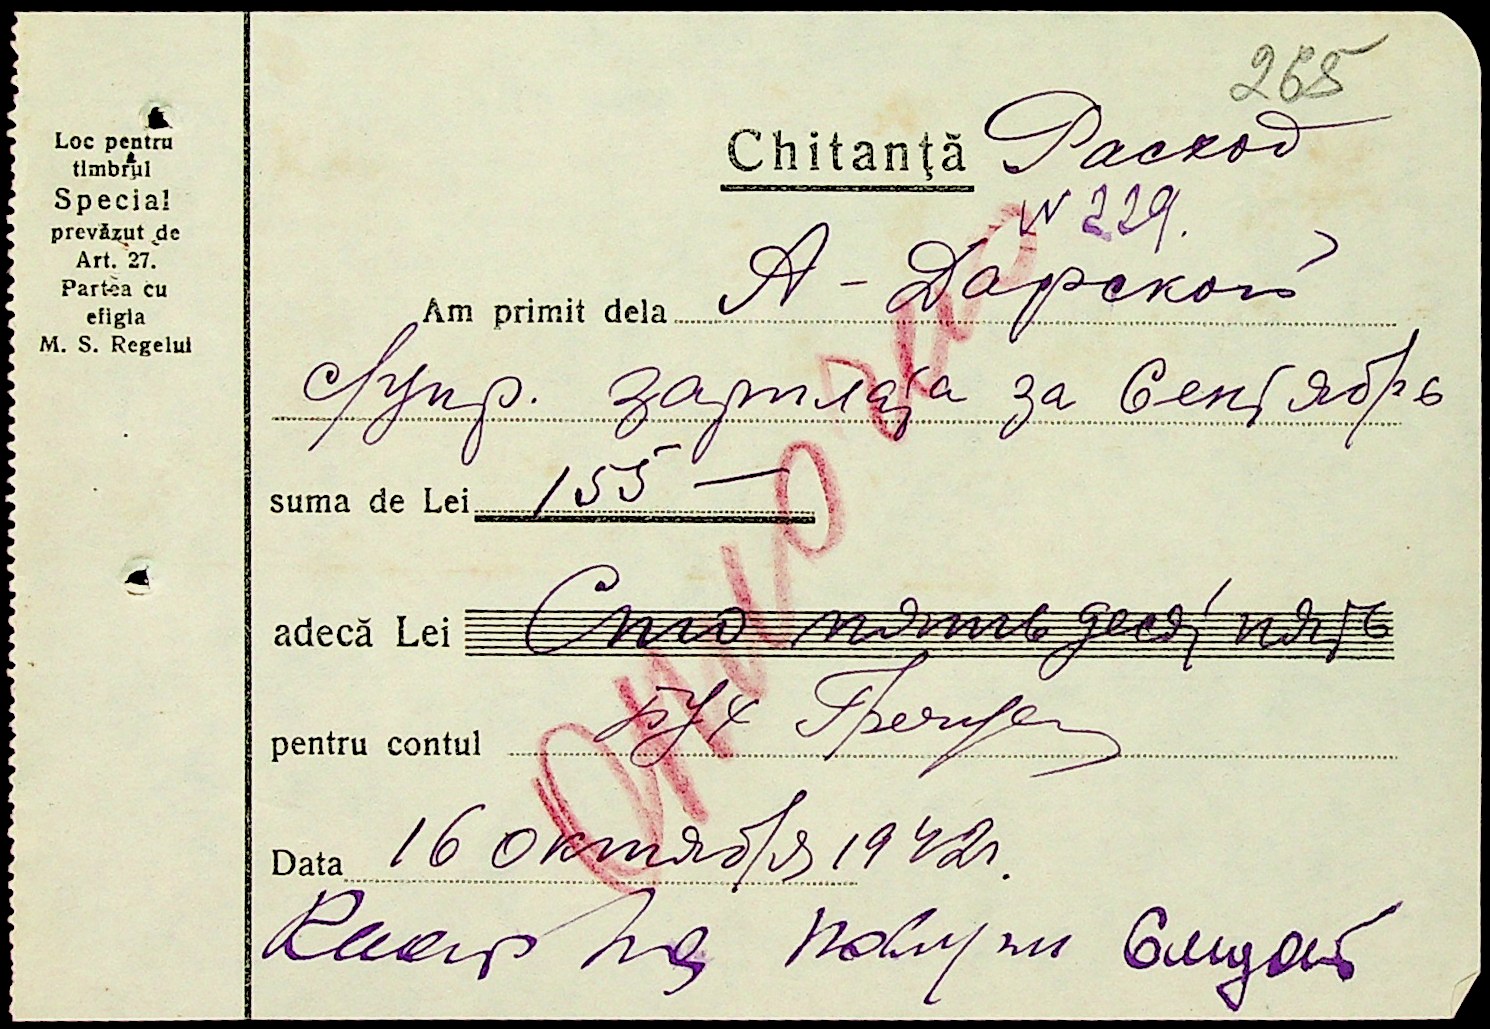 265
Loc pentru
timbrul
Special
prevăzut de
Art. 27.
Partea cu
efigia
M. S. Regelui
Chitanţă Расход
N 229.
Am primit dela А - Дарской
зарплата за Сентябрь
suma de Lei 155 —
adecă Lei Сто пятьдесят пять
pentru contul бух
Data 16 октября 1942 г.
Оплочено